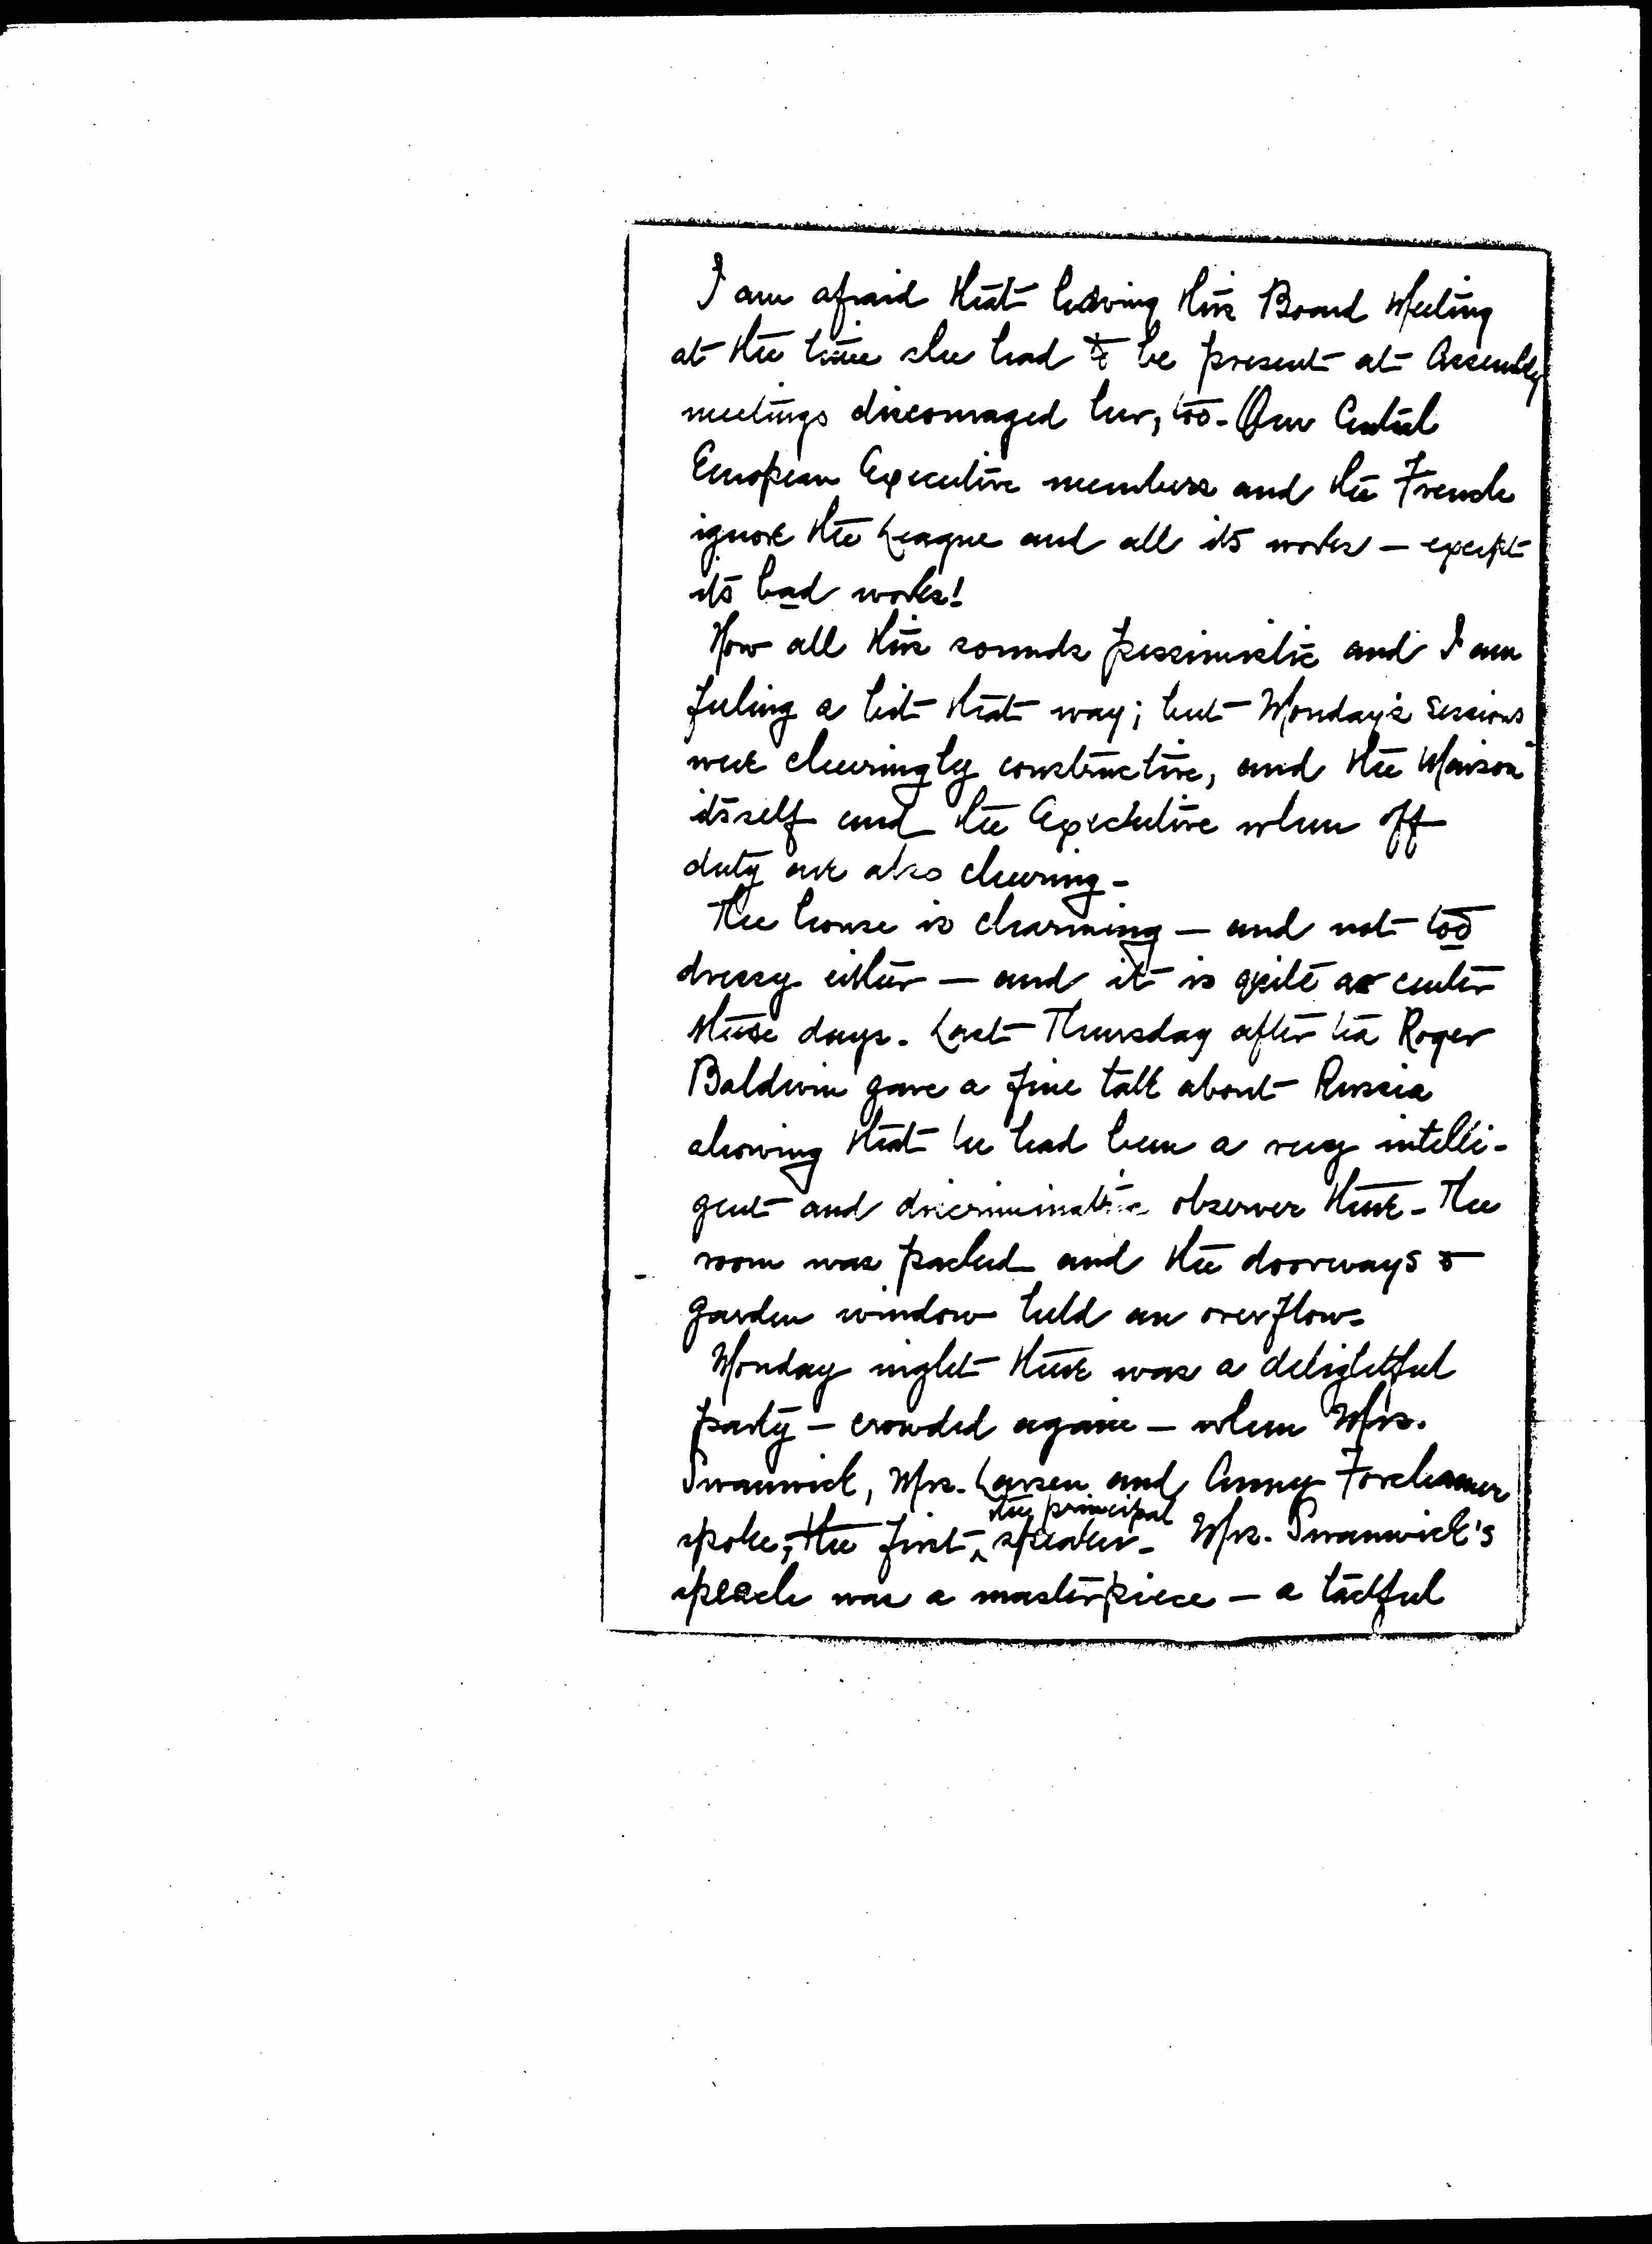 I am afraid that having this Board Meeting
at the time she had to be present at Assembly
meetings discouraged her, too. Our Central
European Executive members and the French
ignore the League and all its works — except
its bad works!
Now all this sounds pessimistic and I am
feeling a bit that way; but Monday's sessions
were cheeringly constructive, and the "Maison"
itself and the Executive when off
duty are also cheering -
The house is charming — and not too
dressy either — and it is quite a center
these days. Last Thursday after tea Roger
Baldwin gave a fine talk about Russia
showing that he had been a very intelli-
gent and discriminating observer there - The
room was packed and the doorways &
garden window held an overflow -
Monday night there was a delightful
party — crowded again — when Mrs.
Swanwick, Mrs. Larsen and Anny
the principal
spoke, the first, speaker - Mrs. Swanwick's
speech was a masterpiece — a tactful